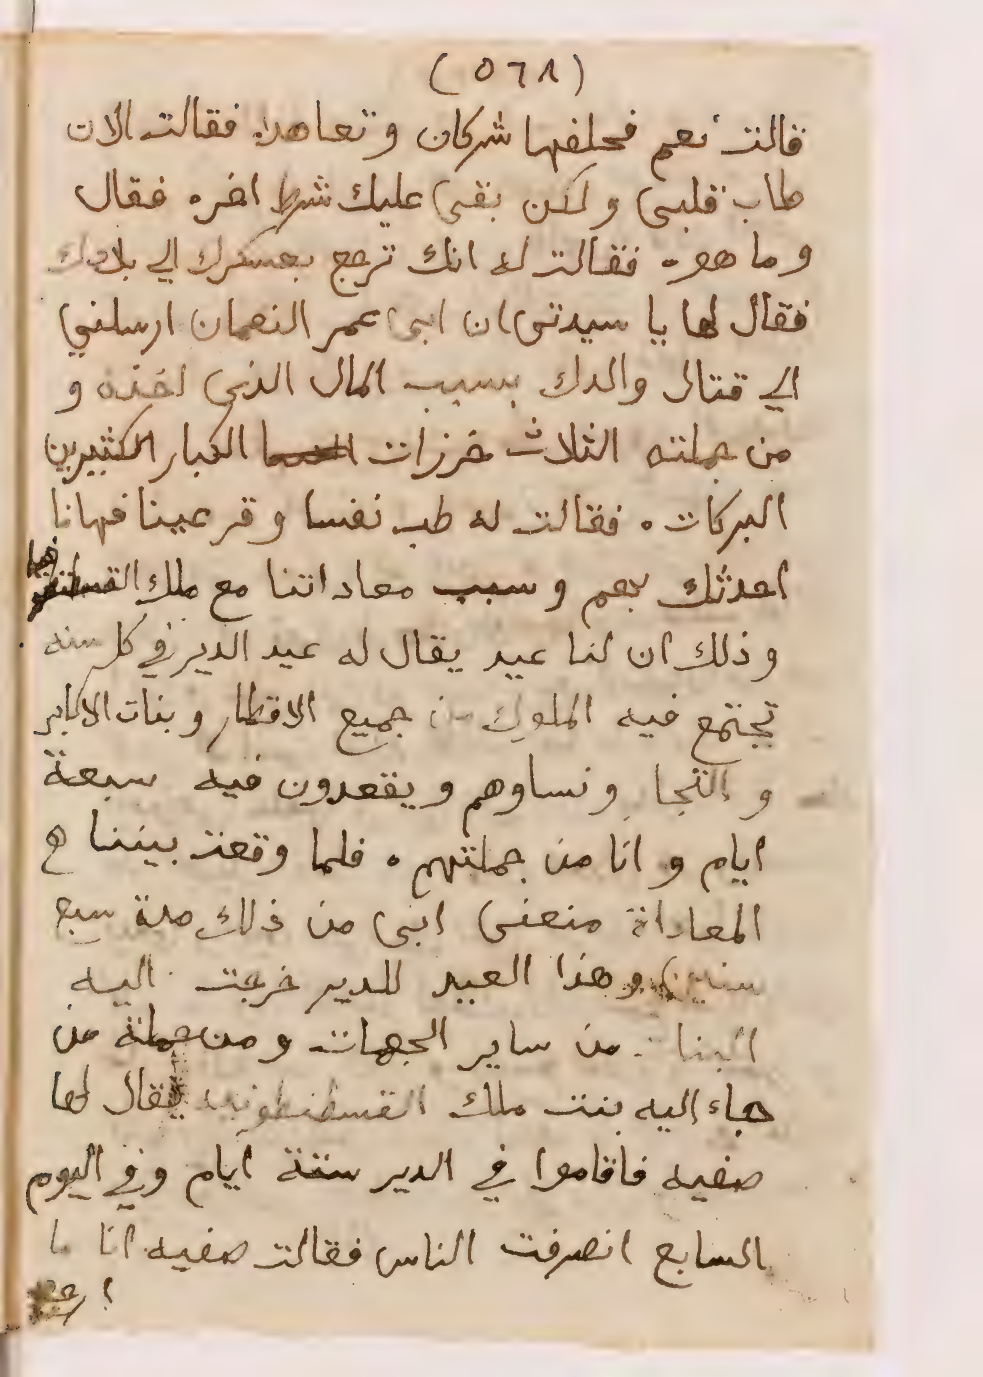 (٥٦٨)
قالت نعم فحلفها شركان وتعاهدا فقالت الان
طاب قلبى ولكن بقى عليك شرط اخره فقال
وما هوه فقالت له انك ترجع بعسكرك الي بلادك
فقال لها يا سيدتى ان ابى عمر النعمان ارسلني
الي قتال والدك بسبب المال الذى اخذه و
من جملته الثلاث خرزات الكبار الكثيرين
البركات ٠ فقالت له طب نفسا وقر عينا فهانا
احدثك بهم وسبب معاداتنا مع ملك
وذلك ان لنا عيد يقال له عيد الدير في كل سنه
تجتمع فيه الملوك من جميع الاقطار وبنات الاكابر
و التجار ونساوهم ويقعدون فيه سبعة
ايام و انا من جملتهم ٠ فلما وقعت بيننا
المعاداة منعنى ابى من ذلك مدة سبع
سنين وهذا العيد للدير خرجت اليه
البنات من ساير الجهات ومن جملة من
جاء اليه بنت ملك القسطنطونيه يقال لها
صفيه فاقاموا في الدير ستة ايام وفي اليوم
السابع انصرفت الناس فقالت صفيه انا ما